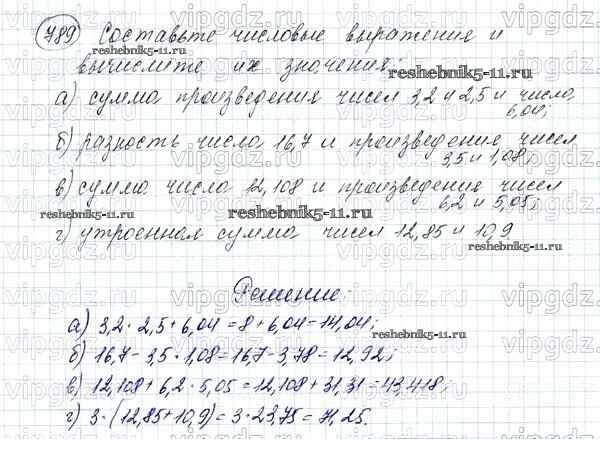 789 Составьте числовые выражения и
вычислите их значения:
а) сумма произведения чисел 3,2 и 2,5 и число
6,04;
б) разность числа 16,7 и произведения чисел
3,5 и 1,08;
в) сумма числа 12,108 и произведения чисел
6,2 и 5,05;
г) утроенная сумма чисел 12,85 и 10,9.
Решение:
а) 3,2 · 2,5 + 6,04 = 8 + 6,04 = 14,04;
б) 16,7 - 3,5 · 1,08 = 16,7 - 3,78 = 12,92;
в) 12,108 + 6,2 · 5,05 = 12,108 + 31,31 = 43,418;
г) 3 · (12,85 + 10,9) = 3 · 23,75 = 71,25.
vipgdz.com
reshebnik5-11.ru
reshebnik5-11.ru
reshebnik5-11.ru
reshebnik5-11.ru
reshebnik5-11.ru
reshebnik5-11.ru